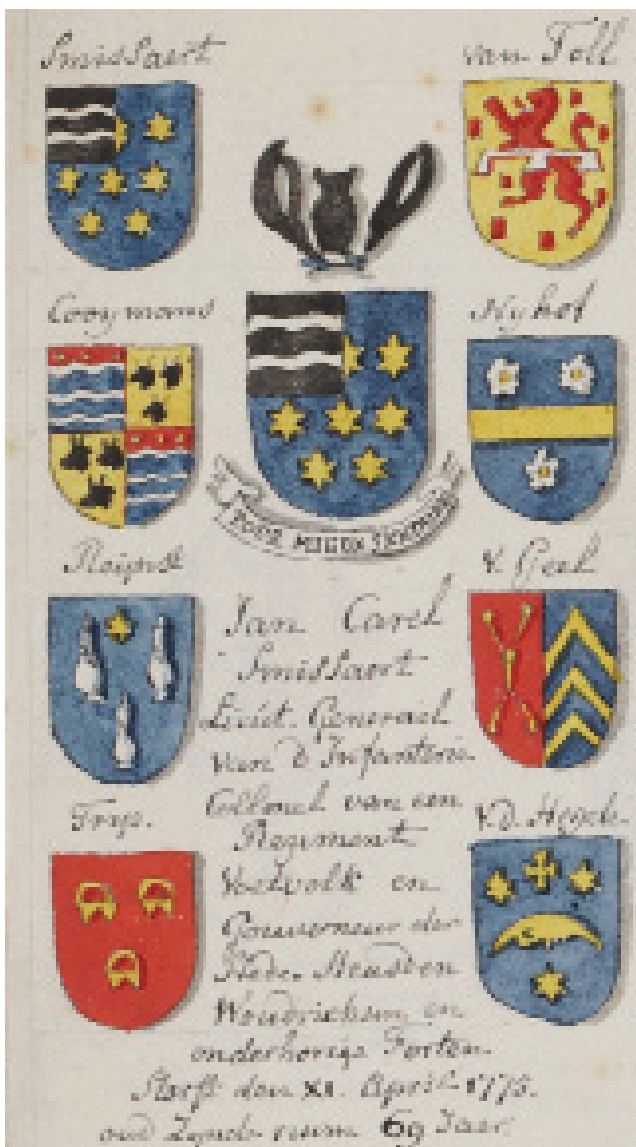 Smissaert
van Toll
Cooymans
Nyhof
v. Geel
Trip.
v. d. Heyde
Jan Carel
Smissaert
Lieut. Generael
van d'Infanterie
Collonel van een
Regiment
Voetvolk en
Gouverneur der
Stede Heusden
Woudrichem en
onderhorige Forten
Sterft den XI. April 1775.
oud zynde ruim 69 Jaar.